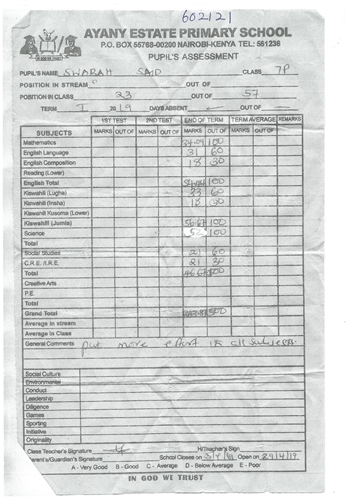 602121
AYANY ESTATE PRIMARY SCHOOL
P.O. BOX 55768-00200 NAIROBI-KENYA TEL: 561236
PUPIL'S ASSESSMENT
PUPIL'S NAME SWABAH SAID CLASS 7P
POSITION IN STREAM OUT OF
POSITION IN CLASS 23 OUT OF 57
TERM I 2019 DAYS ABSENT OUT OF
1ST TEST 2ND TEST END OF TERM TERM AVERAGE REMARKS
SUBJECTS MARKS OUT OF MARKS OUT OF MARKS OUT OF MARKS OUT OF
Mathematics 100
English Language 31 60
English Composition 18 30
Reading (Lower)
English Total 100
Kiswahili (Lugha) 33 60
Kiswahili (Insha) 18 30
Kiswahili Kusoma (Lower)
Kiswahili (Jumla) 56.67 100
Science 52 100
Total
Social Studies 21 60
C.R.E. /I.R.E. 21 30
Total 46.67 100
Creative Arts
P.E.
Total
Grand Total 500
Average in stream
Average in Class
General Comments put more effort in all subjects.
Social Culture
Environmental
Conduct
Leadership
Diligence
Games
Sporting
Initiative
Originality
Class Teacher's Signature H/Teacher's Sign
Parent's/Guardian's Signature School Closes on Open on 29/4/19
A - Very Good B - Good C - Average D - Below Average E - Poor
IN GOD WE TRUST